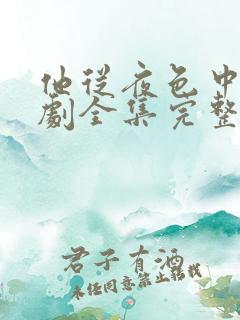 他从夜色中
劇全集完整
君子有酒
未经同意禁止转载